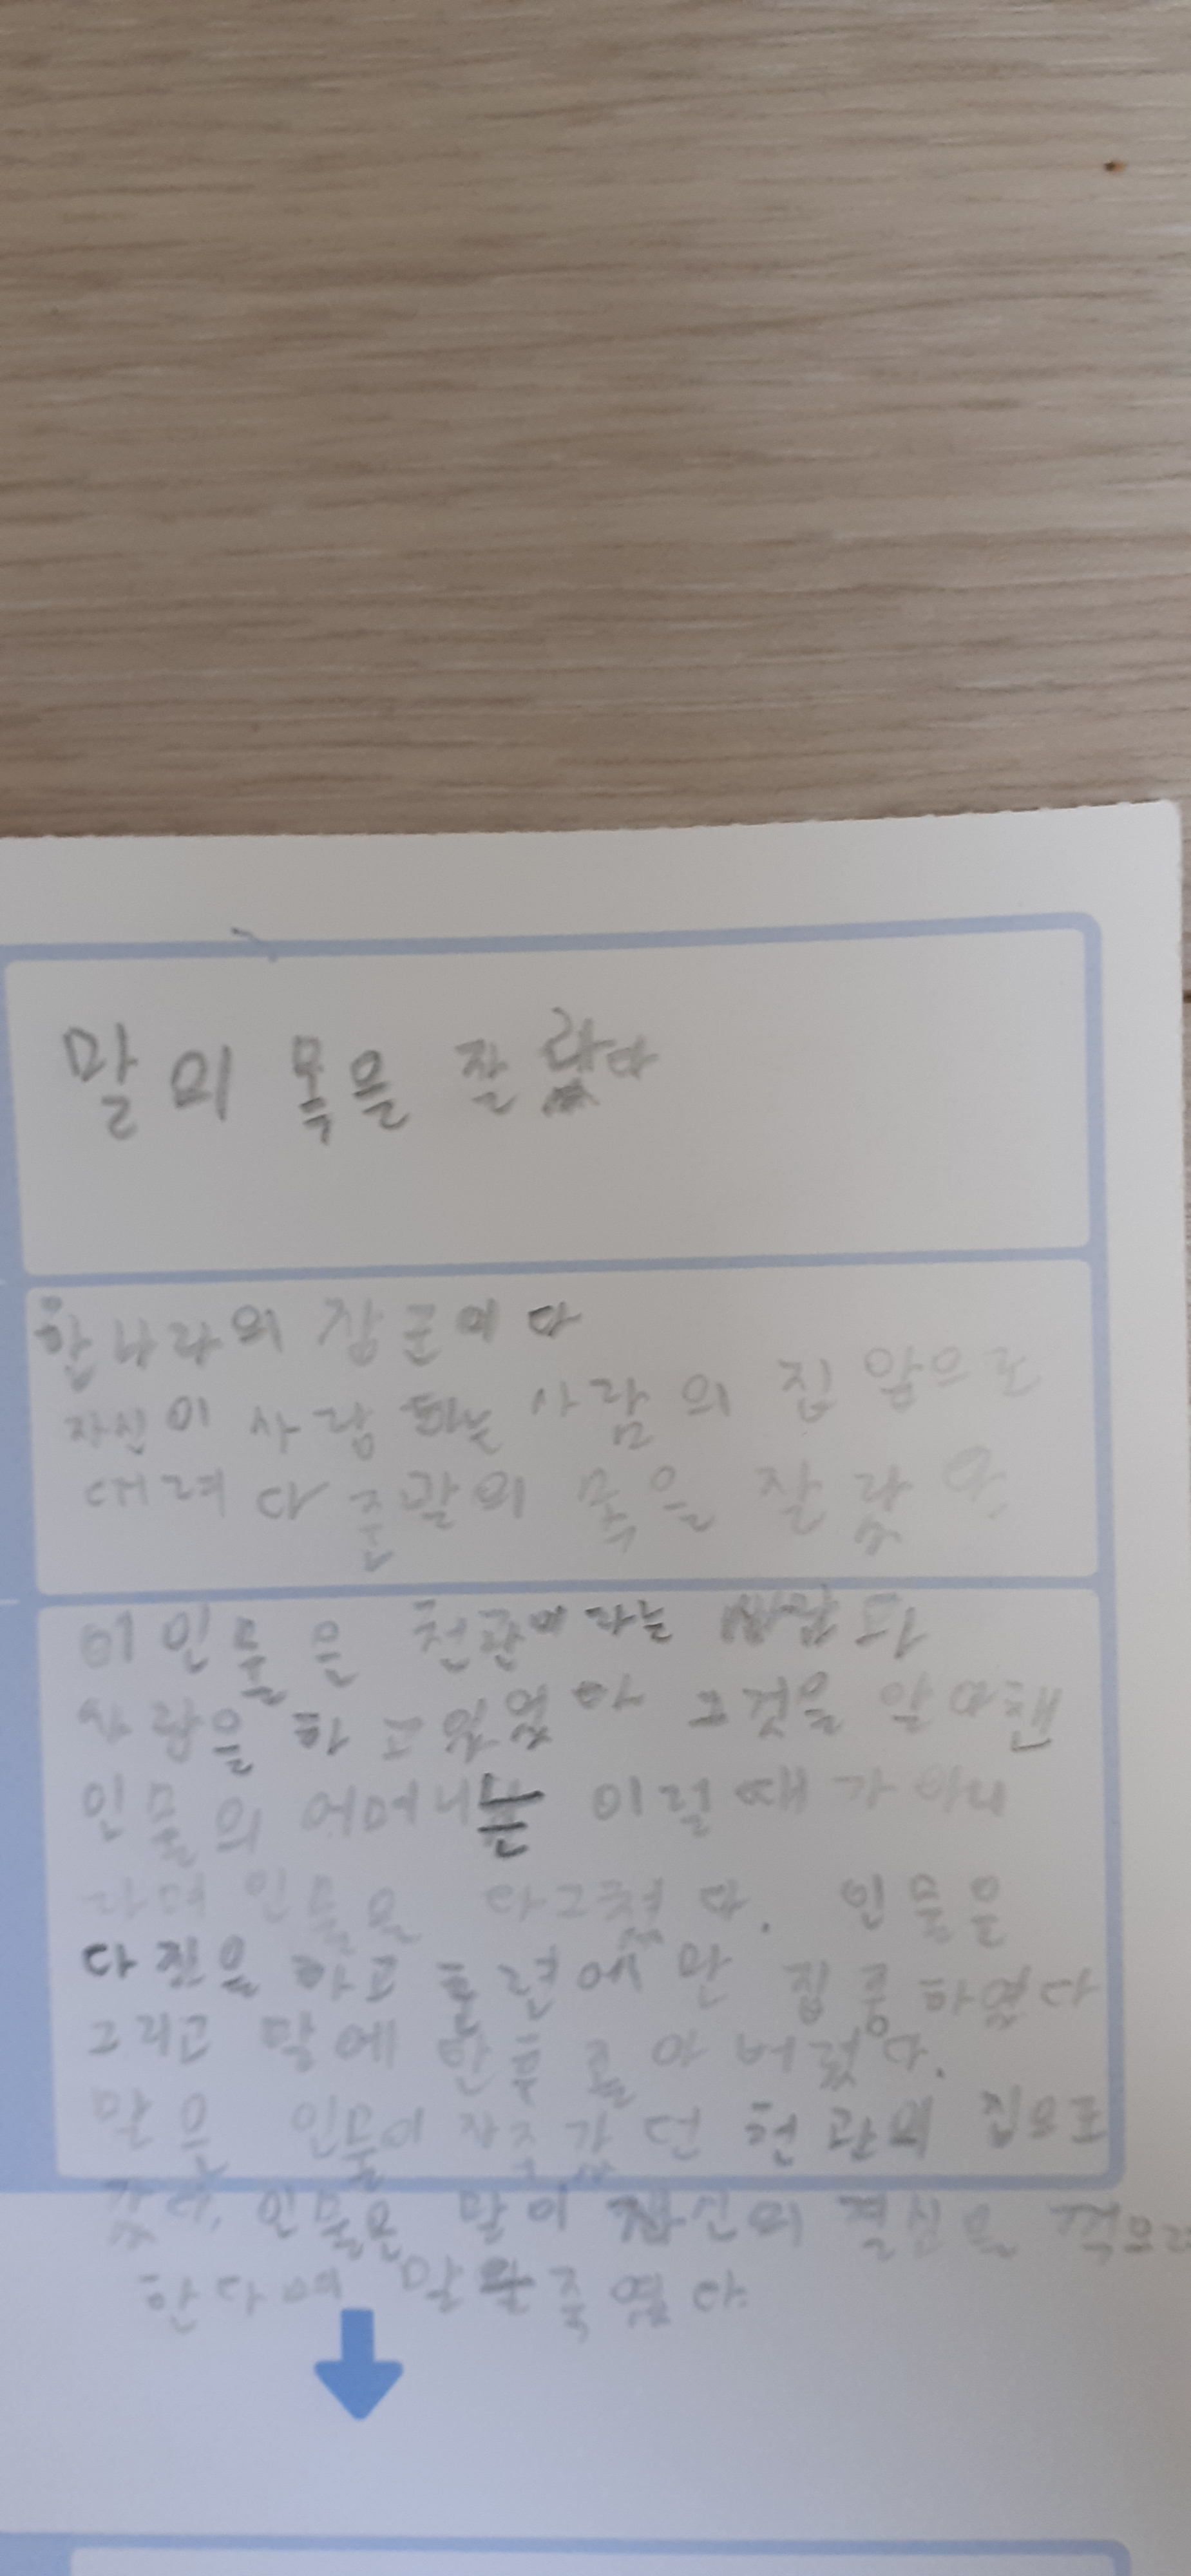 말의 목을 잘랐다
한나라의 장군이다
자신이 사랑 하는 사람의 집 앞으로
대려다 준 말의 목을 잘랐다
이 인물은 천관이라는 사람과
사랑을 하고 있었다 그것을 알아챈
인물의 어머니는 이럴때가 아니
라며 인물을 다그쳤다. 인물은
다짐을 하고 훈련에만 집중하였다
그리고 말에 탄후 졸아 버렸다.
말은 인물이 자주 갔던 천관의 집으로
갔다, 인물은 말이 자신의 결심을 꺽으려
한다며 말을 죽였다.